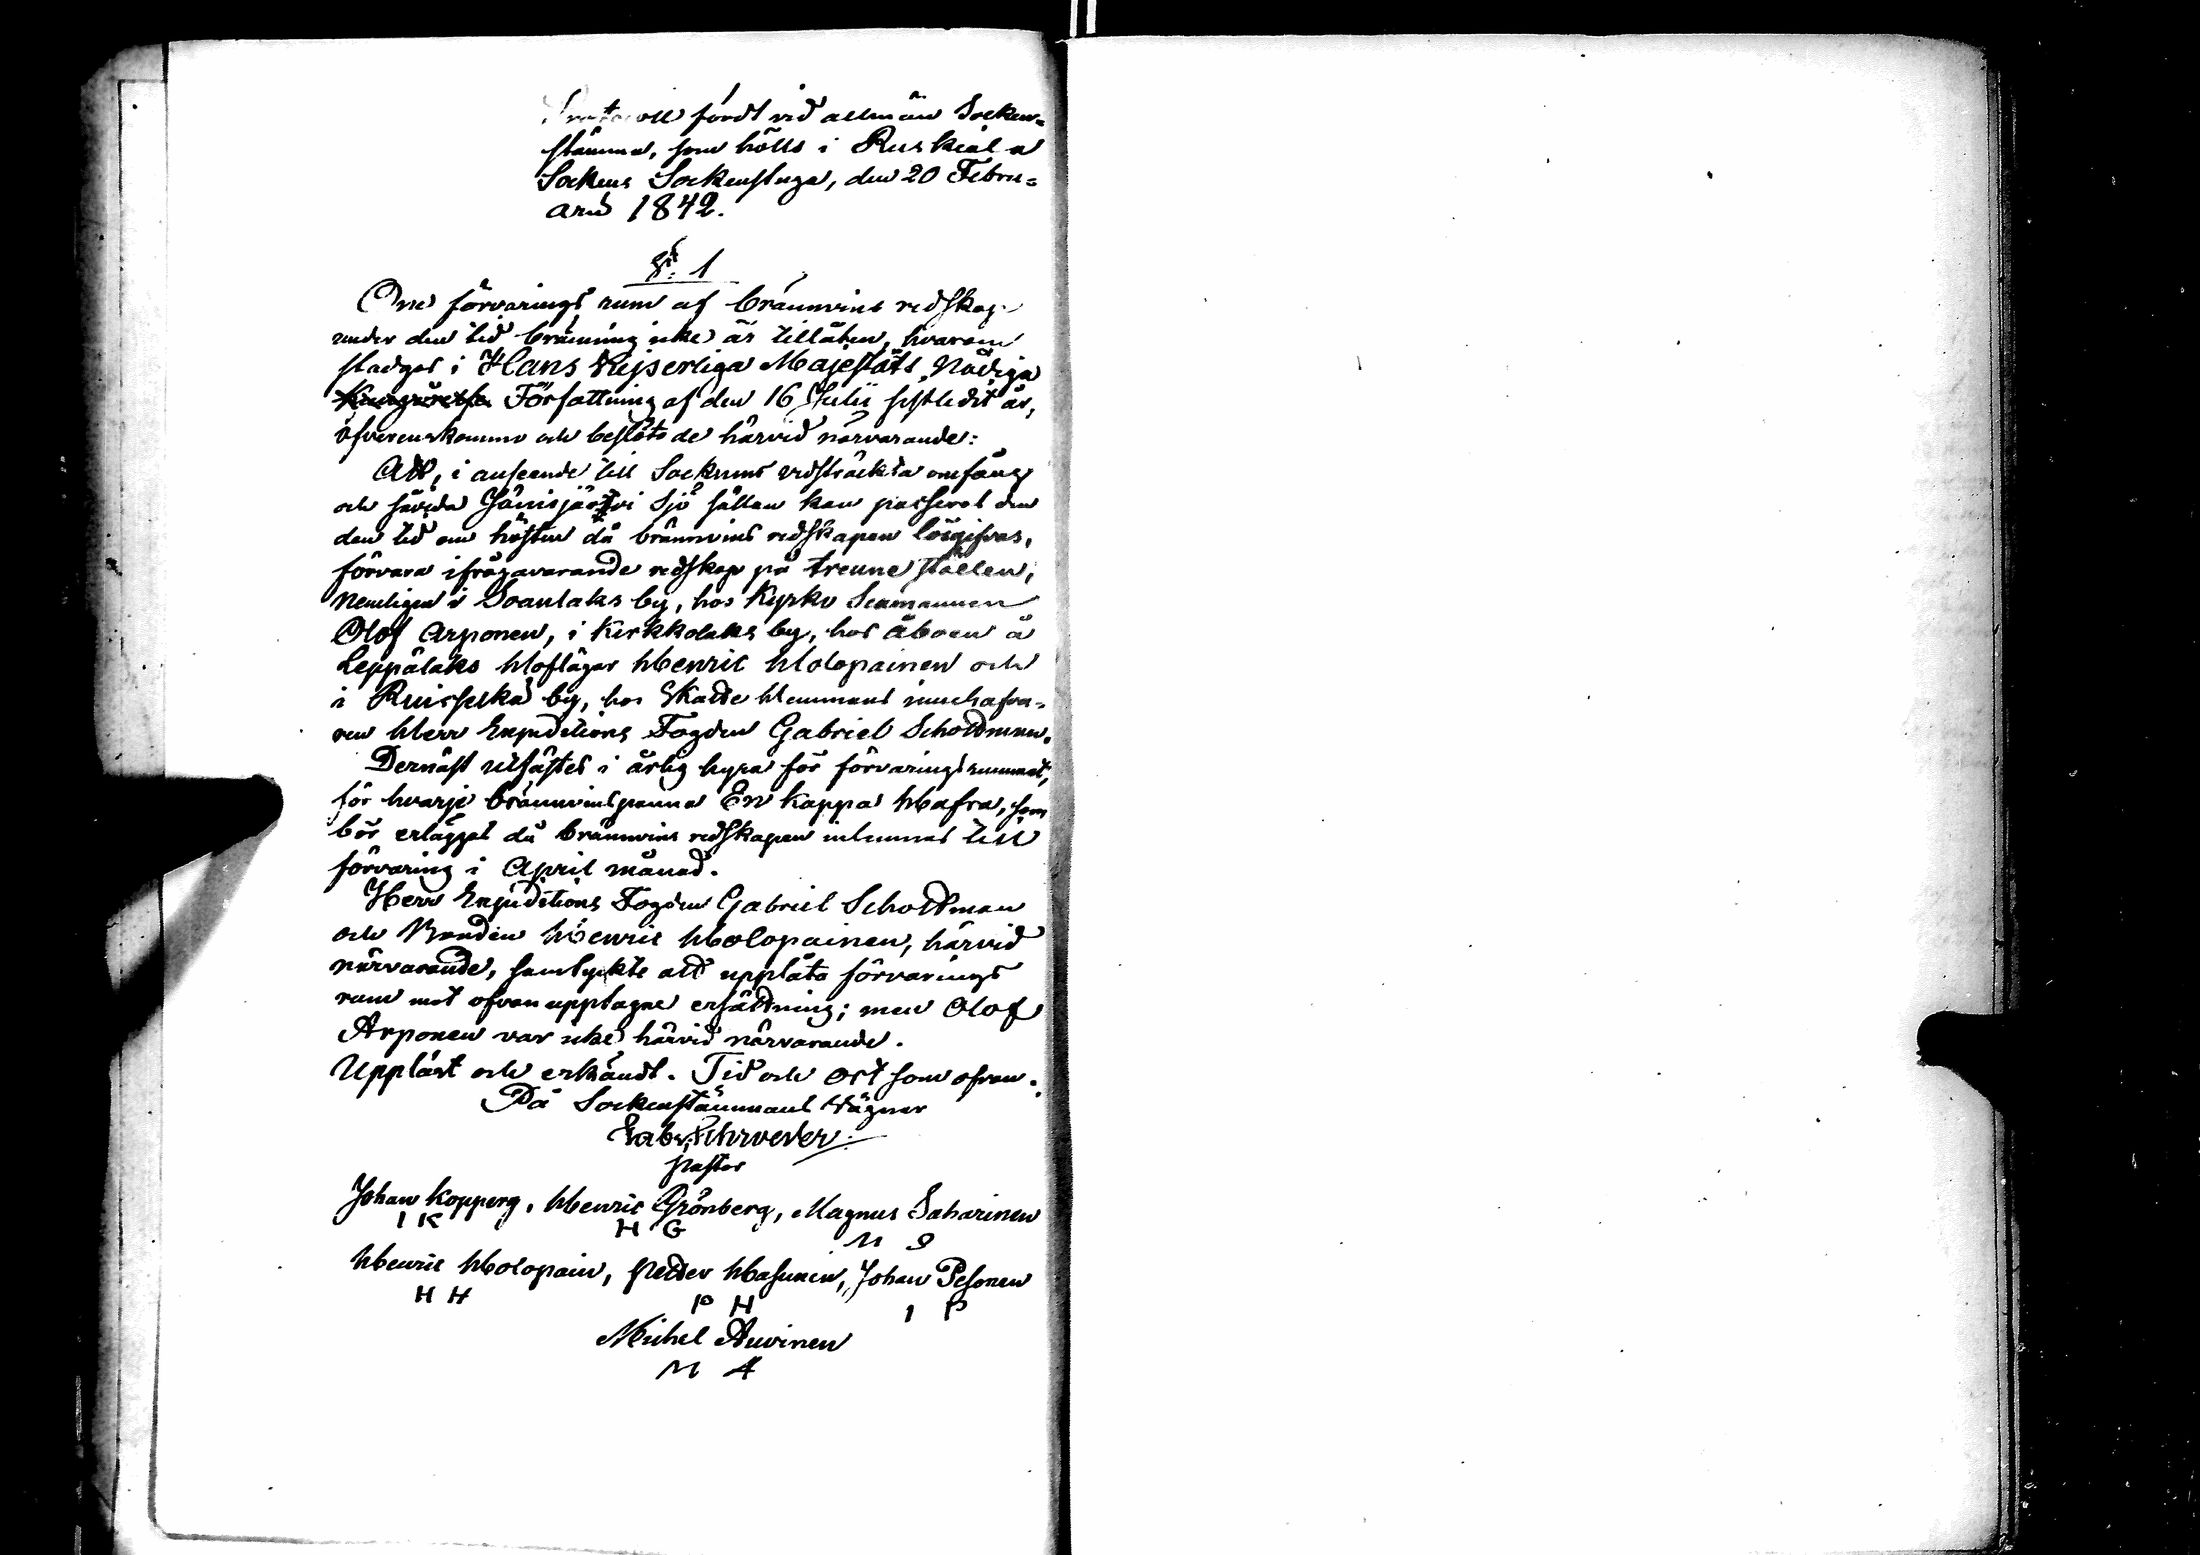 Protocoll fördt vid allmän Socken=
stämma, som hölls i Ruskiala
Sockens Sockenstuga, den 20 Febru=
arii 1842.
§: 1
Om förvarings rum af bränvins redskap
under den tid bränning icke är tillåten, hvarom
stadgas i Hans Kejserliga Majestäts Nådiga
Kungörelse Författning af den 16 Julii sistledit år,
öfverenskommo och beslöto de härvid närvarande:
Att, i anseende till Socknens vidsträckta omfång
och såvida Jänisjärvi Sjö sällan kan passeras den
den tid om hösten då bränvins redskapen lösgifvas,
förvara ifrågavarande redskap på trenne ställen,
Nemligen i Soanlaks by, hos Kyrko Sexmannen
Olof Arponen, i Kirkkolaks by, hos åboen å
Leppälaks Hoflägar Henric Holopainen och
i Ruisselkä by, hos Skatte Hemmans innehafva=
ren Herr Expeditions Fogden Gabriel Scholdman.
Dernäst utfästes i årlig hyra för förvaringsrummet,
för hvarje bränvinspanna En kappa Hafra, som
bör erläggas då bränvins redskapen inlemnas till
förvaring i April månad.
Herr Expeditions Fogden Gabriel Scholdman
och Bonden Henric Holopainen, härvid
närvarande, samtyckte att upplåta förvarings
rum mot ofvanupptagne ersättning; men Olof
Arponen var icke härvid närvarande.
Uppläst och erkändt. Tid och ort som ofvan.
På Sockenstämmans Vägnar
Gabr. Schroeder
pastor
Johan Kopperg, Henric Grönberg, Magnus Saharinen
I K H G M S
Henric Holopain, Petter Hasunen, Johan Pesonen
H H P H I P
Michel Auvinen
M A